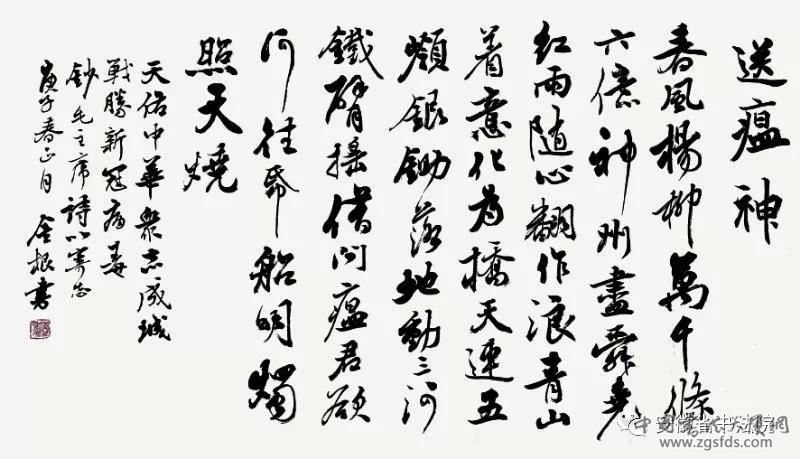 送瘟神
春風楊柳萬千條
六億神州盡舜堯
紅雨随心翻作浪青山
着意化為橋天連五
嶺銀鋤落地動三河
鐵臂搖借問瘟君欲
何往帋船明燭
照天燒
天佑中華眾志成城
戰勝新冠病毒
鈔毛主席詩以寄志
庚子春正月 金根書
www.zgsfds.com